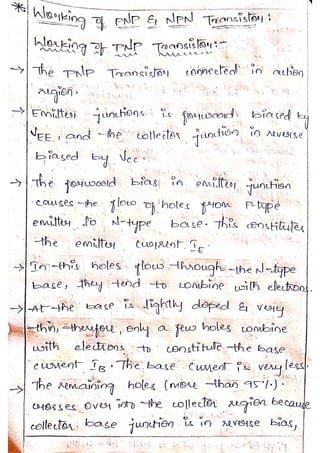 * Working of PNP & NPN Transistor:
Working of PNP Transistor:-
→ The PNP Transistor connected in action
region.
→ Emitter junctions is forward biased by
VEE, and the collector junction in reverse
biased by Vcc.
→ The forward bias in emitter junction
causes the flow of holes from P-type
emitter to N-type base. This constitutes
the emitter current IE.
→ In this holes flow through the N-type
base, they tend to combine with electrons.
→ At the base is lightly doped & very
thin, therefore, only a few holes combine
with electrons to constitute the base
current IB. The base current is very less.
→ The remaining holes (more than 95%).
crosses over into the collector region because
collector base junction is in reverse bias,